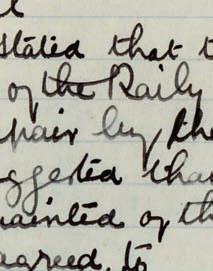 stated that t
of the Raily
epair by the
uggested that
painted of th
agreed to